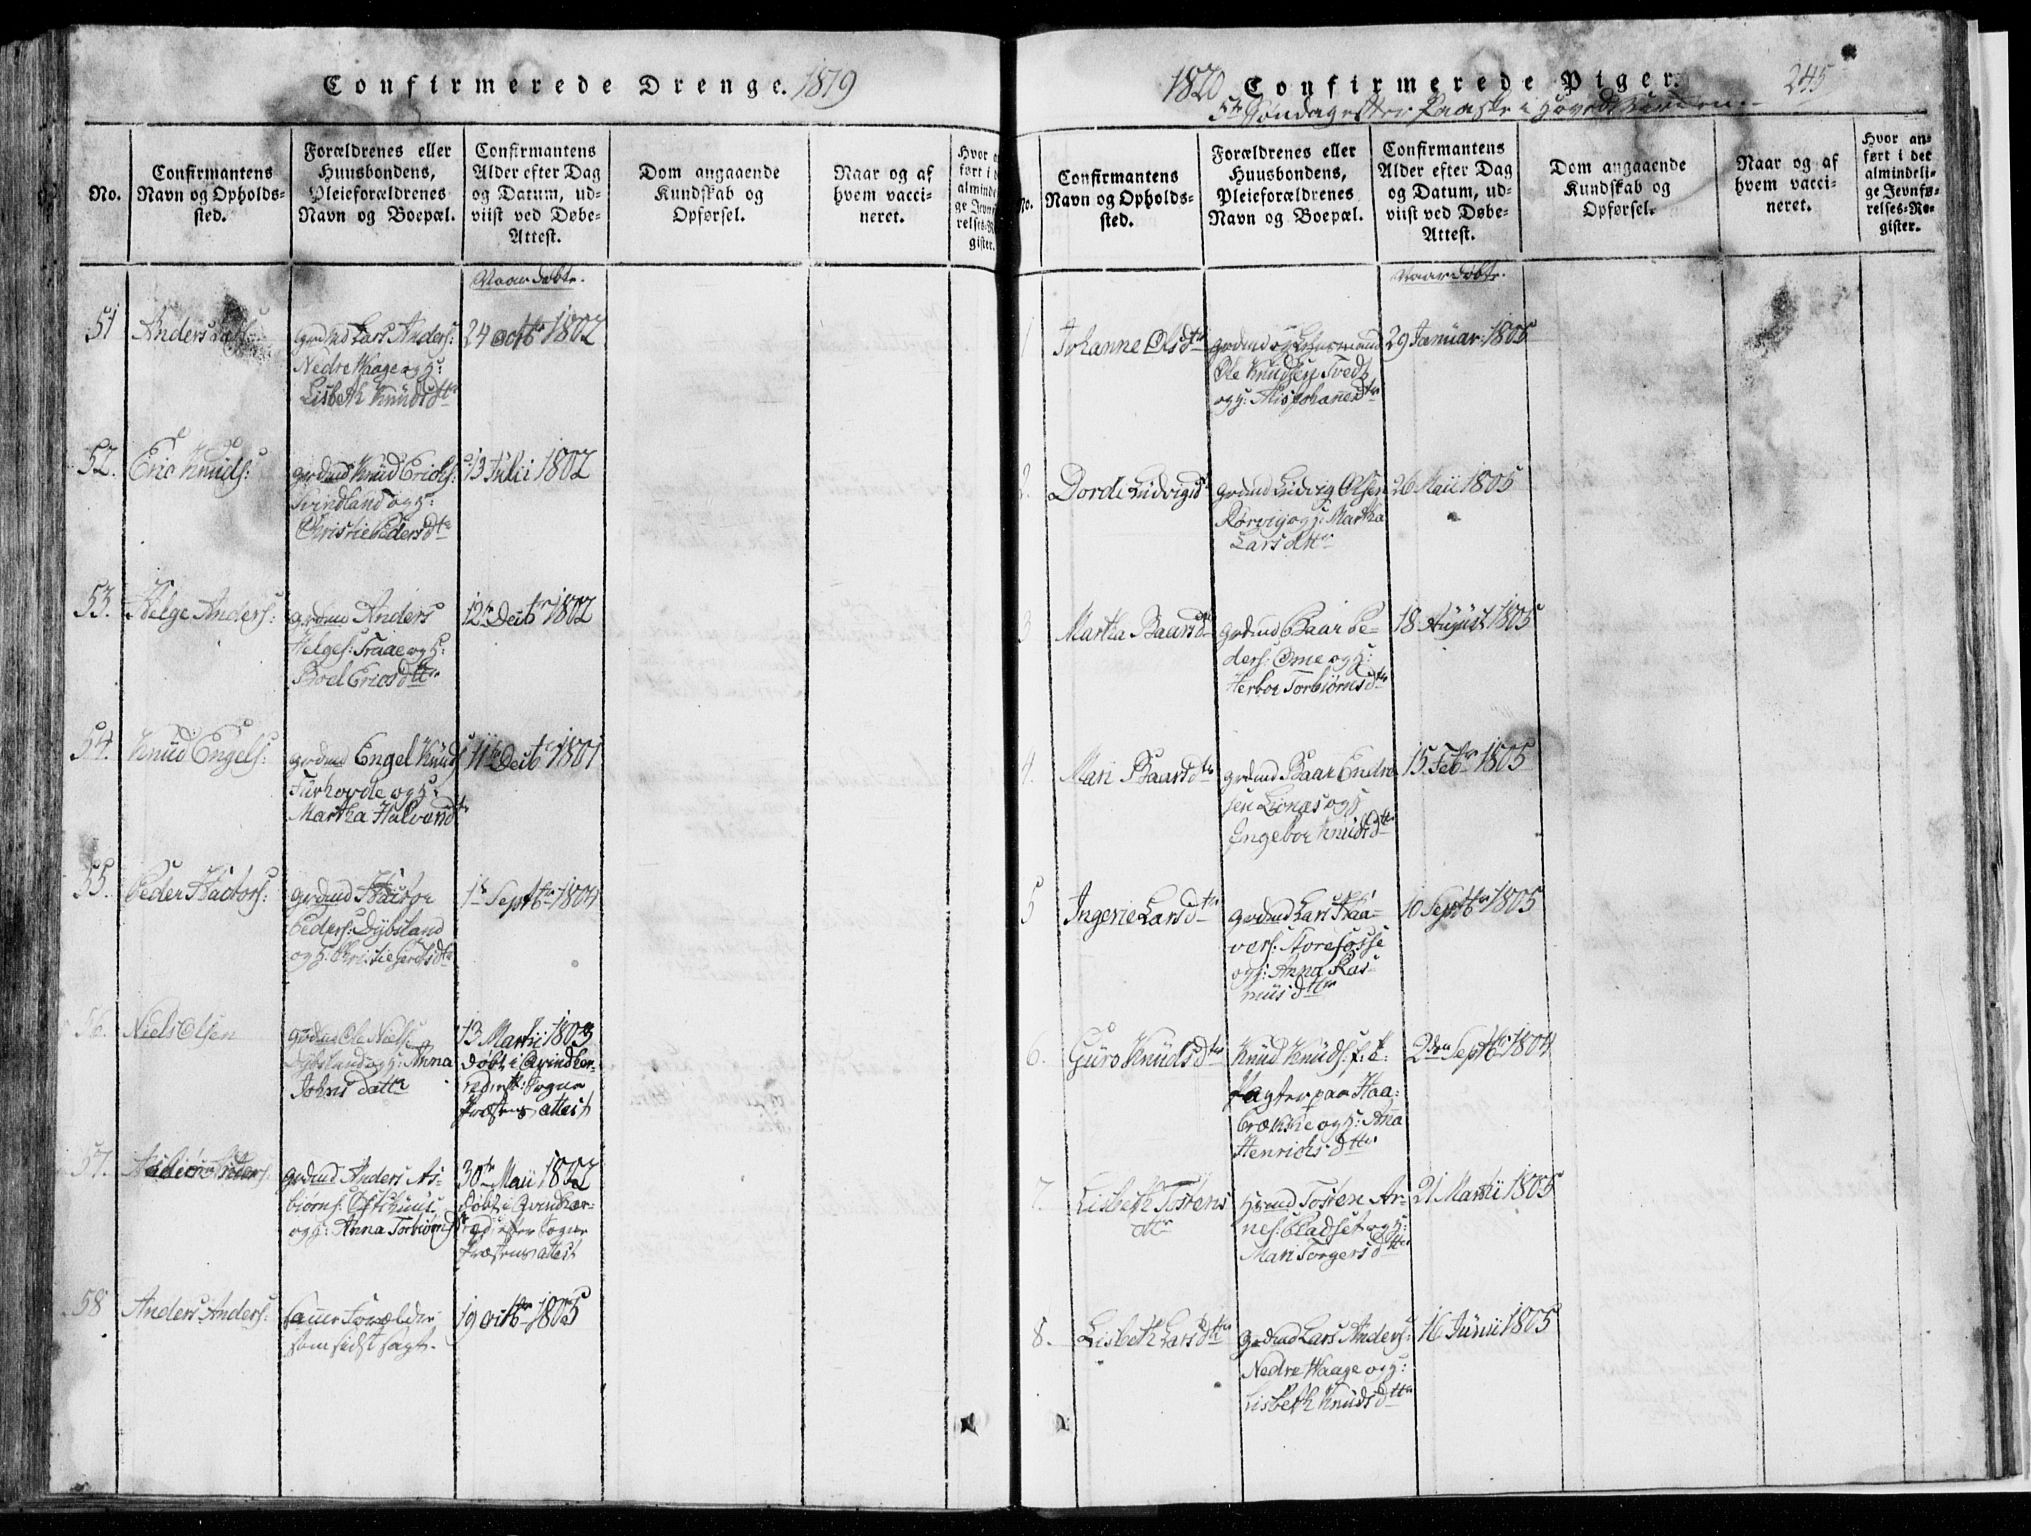 Confirmerede Drenge. 1819
No.
Confirmantens
Navn og Opholds-
sted.
Forældrenes eller
Huusbondens,
Pleieforældrenes
Navn og Boepæl.
Confirmantens
Alder efter Dag
og Datum, ud-
viist ved Døbe-
Attest.
Dom angaaende
Kundskab og
Opførsel.
Naar og af
hvem vacci-
neret.
Hvor
ført i
alminde
ge Jevnfø
relses-
gister.
Naar døbte.
51
Anders
grdmd Lars Anders:
Nedre Waage og H:
Lisbeth Knudsdtr
24 octbr 1802
52.
Eric Knuds:
grdmd Knud Erichs:
Svindland og H:
Christie Pedersdtr
13 Julii 1802
53.
Helge Anders:
grdmd Anders
Helges: Traae og H:
Boel Ericsdtr
12te Decbr 1802
54.
Knud Engels:
grdmd Engel Knuds
og H:
Martha
11te Decbr 1801
55.
Peder
grdmd
Peders: Dybsland
og H: Christie
1te Septbr 1804
56.
Niels Olsen
grdmd Ole Niels
Dybsland og H: Anna
Johns datter
13 Martii 1803
døbt i Qvindher-
red
Præstens attest
57.
grdmd Anders As-
biørns:
og H: Anna Torbiørnsd
30te Maii 1802
døbt i Qvindher-
red efter Sogne
Præstens attest
58
Anders Anders:
Samme Forældre
som sidst sagt.
19 octbr 1805
1820 Confirmerede Piger. 245
5te Søndag efter Paaske i Hovedkirken.
No.
Confirmantens
Navn og Opholds-
sted.
Forældrenes eller
Huusbondens,
Pleieforældrenes
Navn og Boepæl.
Confirmantens
Alder efter Dag
og Datum, ud-
viist ved Døbe-
Attest.
Dom angaaende
Kundskab og
Opførsel.
Naar og af
hvem vacci-
neret.
Hvor an-
ført i det
almindeli-
ge Jevnfø-
relses-Re-
gister.
Naar døbte.
1
Johanne Olsdtr
grdmd og
Ole Knudsen Tvedt
og H:
29 Januar 1805
2.
Dorde Ludvigsd
grdmd Ludvig Olsen
Rørvig og H: Martha
Larsdtr
26 Maii 1805
3
Martha Baarsdtr
grdmd Baar Pe-
ders: Ome og H:
Herbor Torbiørnsdtr
18 August 1805
4.
Mari Baarsdtr
grdmd Baar Endre
sen og H
Engebor Knudsdtr
15 Febr 1805
5
Ingerie Larsdtr
grdmd Lars Haa-
vers: Storefosse
og H: Anna Ras-
musdtter
10 Septbr 1805
6.
Guro Knudsdtr
Knud Knuds:
Pagter paa Haa-
og H: Anna
Henrichsdtter
2den Septbr 1804
7.
Lisbeth Tostens
dtr
Hsmd Tosten Ar-
nes: Pladset og H:
Mari Torgersdtter
21 Martii 1805
8.
Lisbeth Larsdtr
grdmd Lars Anders:
Nedre Waage og H:
Lisbeth Knudsdtter
16 Junii 1805